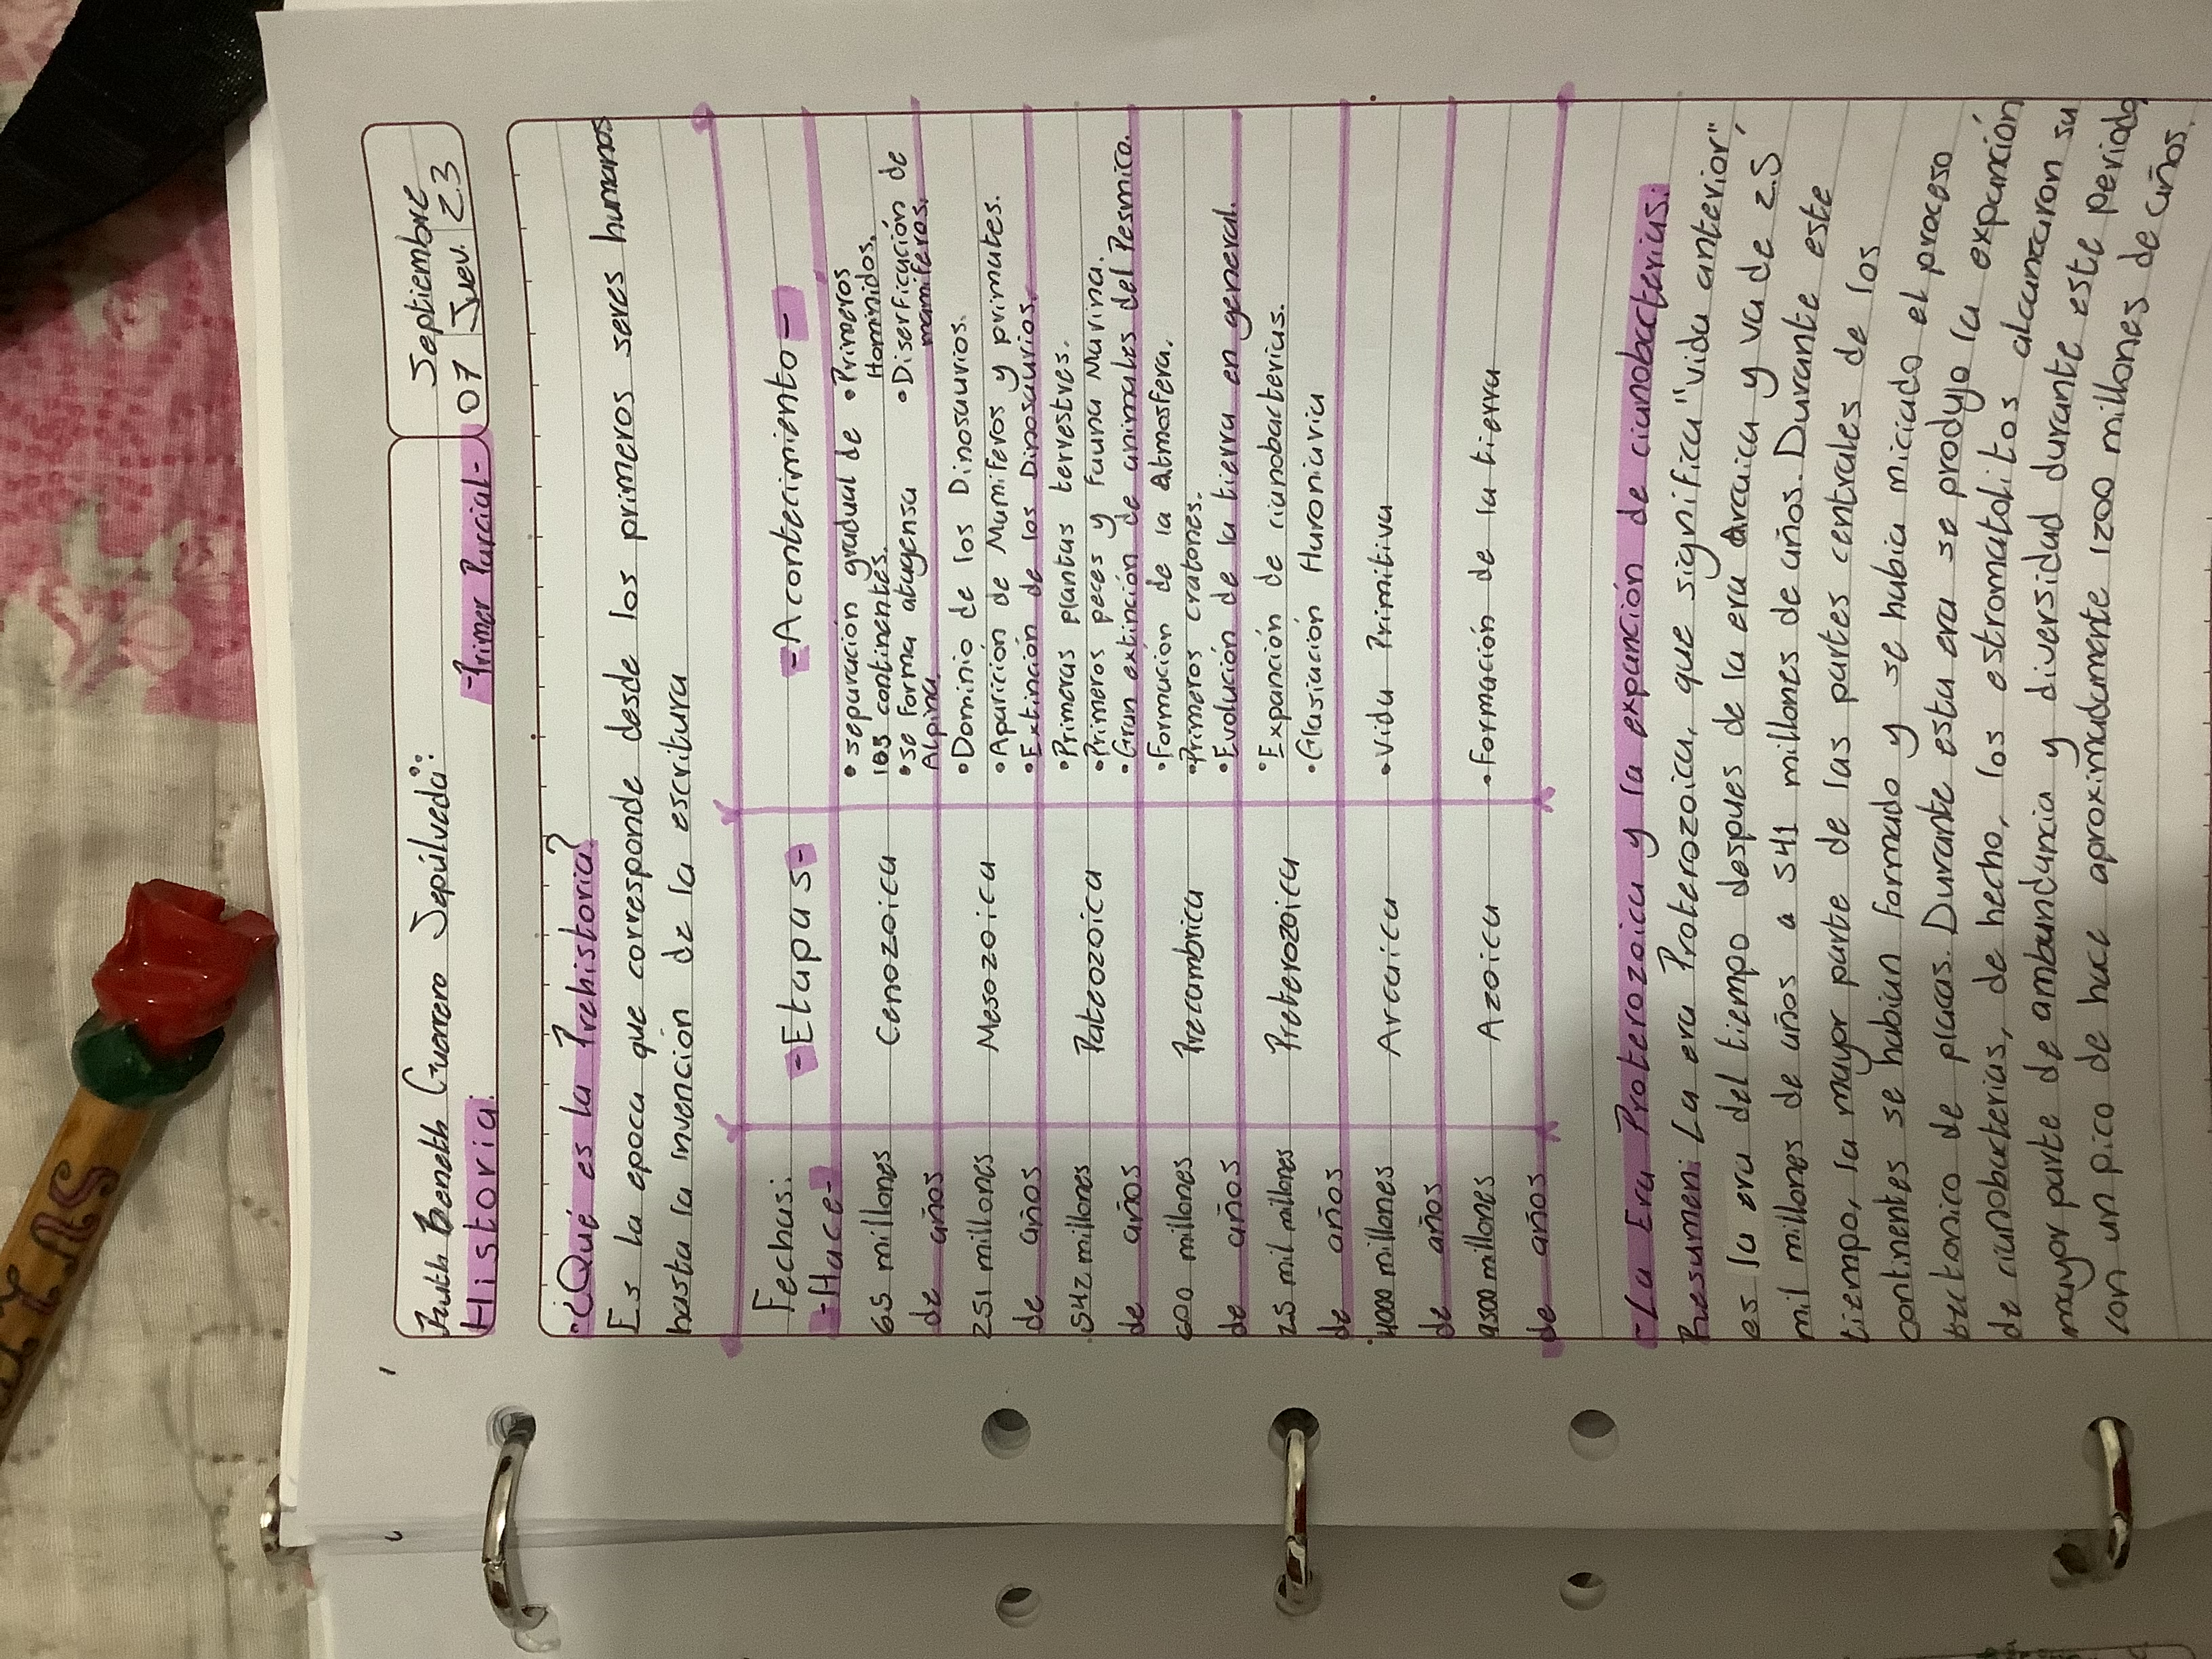 Septiembre
07 Juev. 23
Ruth Beneth Guerrero Sepúlveda
Historia.
-Primer Parcial-
"¿Qué es la Prehistoria?
Es la epoca que corresponde desde los primeros seres humanos
hasta la invención de la escritura
Fechas:
-Hace-
-Etapas-
-Acontecimiento-
65 millones
de años
Cenozoica
• separación gradual de
los continentes.
• se forma atugensa
Alpina.
• Primeros
Hominidos.
• Diserficación de
mamiferos.
251 millones
de años
Mesozoica
• Dominio de los Dinosaurios.
• Aparición de Mamiferos y primates.
• Extinción de los Dinosaurios.
542 millones
de años
Pateozoica
• Primeras plantas terrestres.
• Primeros peces y fauna Marina.
• Gran extinción de animales del Pesmico.
600 millones
de años
Precambrica
• Formación de la Atmosfera.
• Primeros cratones.
• Evolución de la tierra en general.
25 mil millones
de años
Preterozoica
• Expanción de cianobacterias.
• Glasiación Huroniavia
4000 millones
de años
Arcaica
• Vida Primitiva
9500 millones
de años
Azoica
• Formación de la tierra
-La Era Proterozoica y la expanción de cianobacterias.
Resumen: La era Proterozoica, que significa "vida anterior",
es la era del tiempo despues de la era Arcaica y va de 2.5
mil millones de años a 541 millones de años. Durante este
tiempo, la mayor parte de las partes centrales de los
continentes se habian formado y se habia iniciado el proceso
tuctonico de placas. Durante esta era se produjo la expanción
de cianobacterias, de hecho, los estromatolitos alcanzaron su
mayor parte de ambundancia y diversidad durante este periodo
con un pico de hace aproximadamente 1200 millones de años.